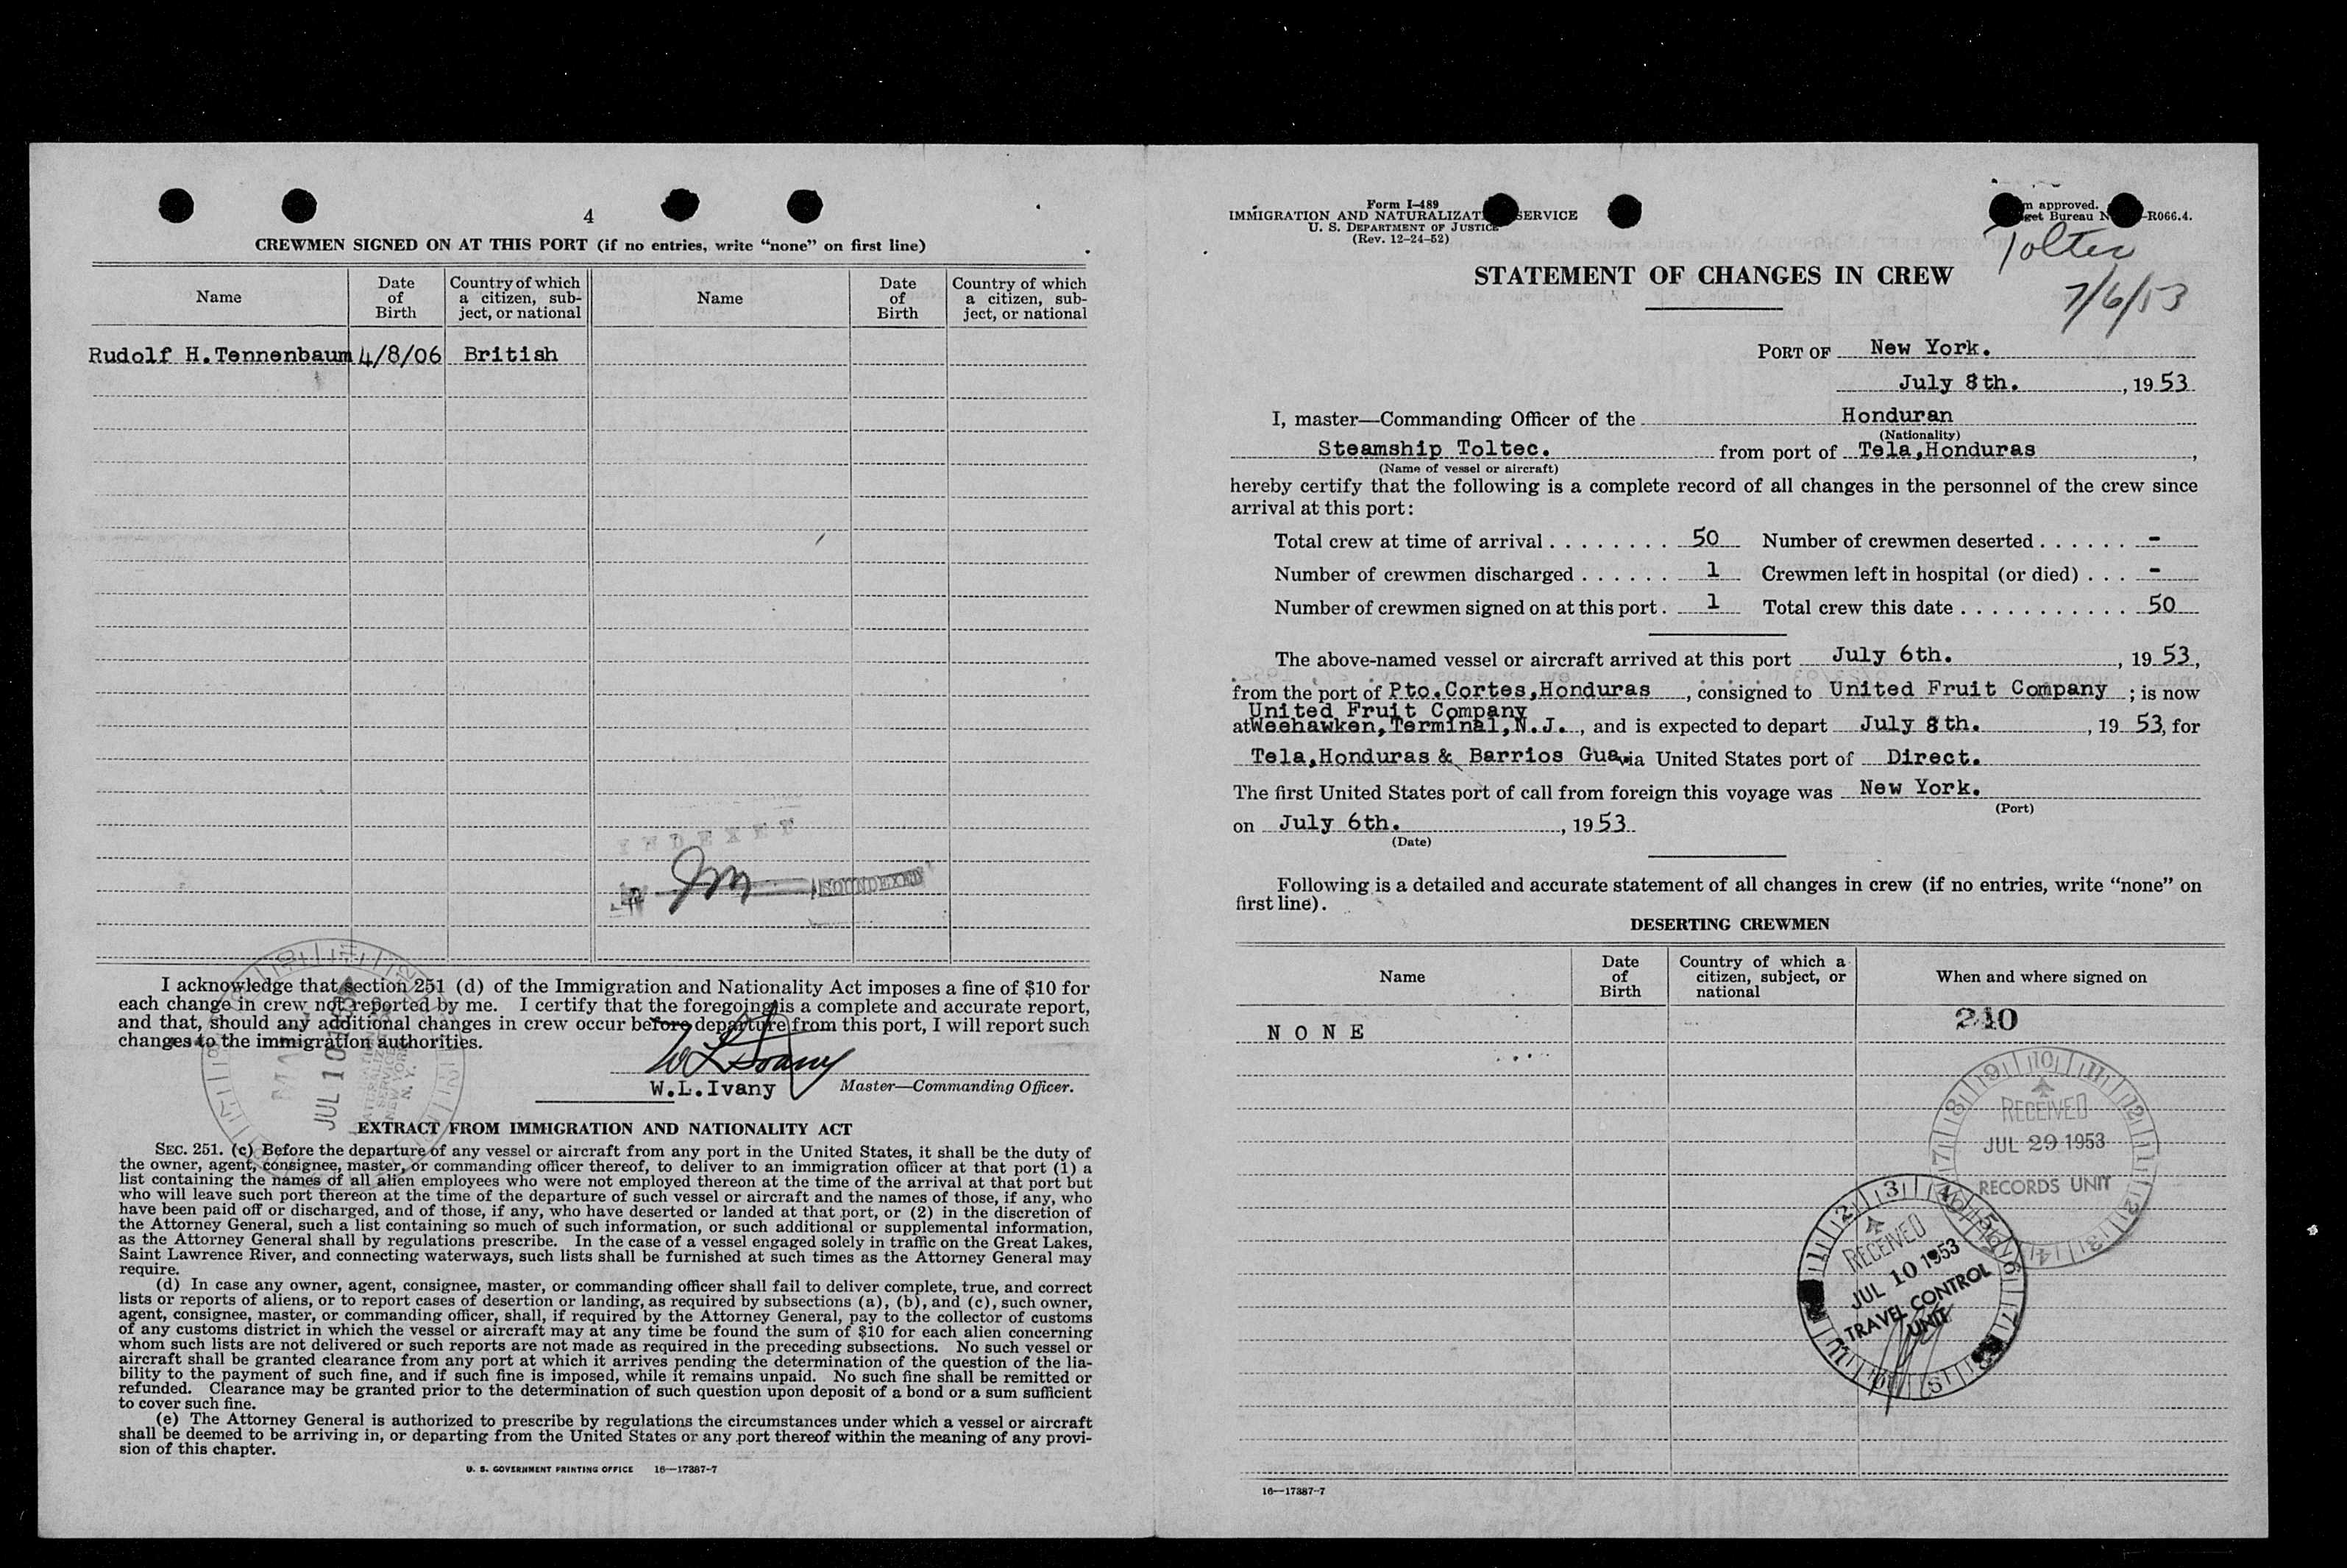 4
CREWMEN SIGNED ON AT THIS PORT (if no entries, write “none” on first line)
Name
Date of Birth
Country of which a citizen, subject, or national
Name
Date of Birth
Country of which a citizen, subject, or national
Rudolf H.Tennenbaum 4/8/06 British
INDEXED
SOUNDEXED
I acknowledge that section 251 (d) of the Immigration and Nationality Act imposes a fine of $10 for
each change in crew not reported by me. I certify that the foregoing is a complete and accurate report,
and that, should any additional changes in crew occur before departure from this port, I will report such
changes to the immigration authorities.
W L Ivany
W.L.Ivany Master—Commanding Officer.
JUL 10
EXTRACT FROM IMMIGRATION AND NATIONALITY ACT
SEC. 251. (c) Before the departure of any vessel or aircraft from any port in the United States, it shall be the duty of
the owner, agent, consignee, master, or commanding officer thereof, to deliver to an immigration officer at that port (1) a
list containing the names of all alien employees who were not employed thereon at the time of the arrival at that port but
who will leave such port thereon at the time of the departure of such vessel or aircraft and the names of those, if any, who
have been paid off or discharged, and of those, if any, who have deserted or landed at that port, or (2) in the discretion of
the Attorney General, such a list containing so much of such information, or such additional or supplemental information,
as the Attorney General shall by regulations prescribe. In the case of a vessel engaged solely in traffic on the Great Lakes,
Saint Lawrence River, and connecting waterways, such lists shall be furnished at such times as the Attorney General may
require.
(d) In case any owner, agent, consignee, master, or commanding officer shall fail to deliver complete, true, and correct
lists or reports of aliens, or to report cases of desertion or landing, as required by subsections (a), (b), and (c), such owner,
agent, consignee, master, or commanding officer, shall, if required by the Attorney General, pay to the collector of customs
of any customs district in which the vessel or aircraft may at any time be found the sum of $10 for each alien concerning
whom such lists are not delivered or such reports are not made as required in the preceding subsections. No such vessel or
aircraft shall be granted clearance from any port at which it arrives pending the determination of the question of the lia-
bility to the payment of such fine, and if such fine is imposed, while it remains unpaid. No such fine shall be remitted or
refunded. Clearance may be granted prior to the determination of such question upon deposit of a bond or a sum sufficient
to cover such fine.
(e) The Attorney General is authorized to prescribe by regulations the circumstances under which a vessel or aircraft
shall be deemed to be arriving in, or departing from the United States or any port thereof within the meaning of any provi-
sion of this chapter.
U. S. GOVERNMENT PRINTING OFFICE 16—17387-7
Form I-489
IMMIGRATION AND NATURALIZAT SERVICE
U. S. DEPARTMENT OF JUSTICE
(Rev. 12-24-52)
m approved.
get Bureau N -R066.4.
Toltec
7/6/53
STATEMENT OF CHANGES IN CREW
PORT OF New York.
July 8th. , 19 53
I, master—Commanding Officer of the Honduran
(Nationality)
Steamship Toltec. from port of Tela,Honduras ,
(Name of vessel or aircraft)
hereby certify that the following is a complete record of all changes in the personnel of the crew since
arrival at this port:
Total crew at time of arrival . . . . . . . . 50 Number of crewmen deserted . . . . . . -
Number of crewmen discharged . . . . . . 1 Crewmen left in hospital (or died) . . . -
Number of crewmen signed on at this port . 1 Total crew this date . . . . . . . . . . . . 50
The above-named vessel or aircraft arrived at this port July 6th. , 19 53,
from the port of Pto.Cortes,Honduras , consigned to United Fruit Company ; is now
United Fruit Company
at Weehawken,Terminal,N.J. , and is expected to depart July 8th. , 19 53, for
Tela,Honduras & Barrios Gua. via United States port of Direct.
The first United States port of call from foreign this voyage was New York.
(Port)
on July 6th. , 19 53
(Date)
Following is a detailed and accurate statement of all changes in crew (if no entries, write “none” on
first line).
DESERTING CREWMEN
Name
Date of Birth
Country of which a citizen, subject, or national
When and where signed on
240
N O N E
RECEIVED
JUL 29 1953
RECORDS UNIT
RECEIVED
JUL 10 1953
TRAVEL CONTROL
UNIT
16—17387-7